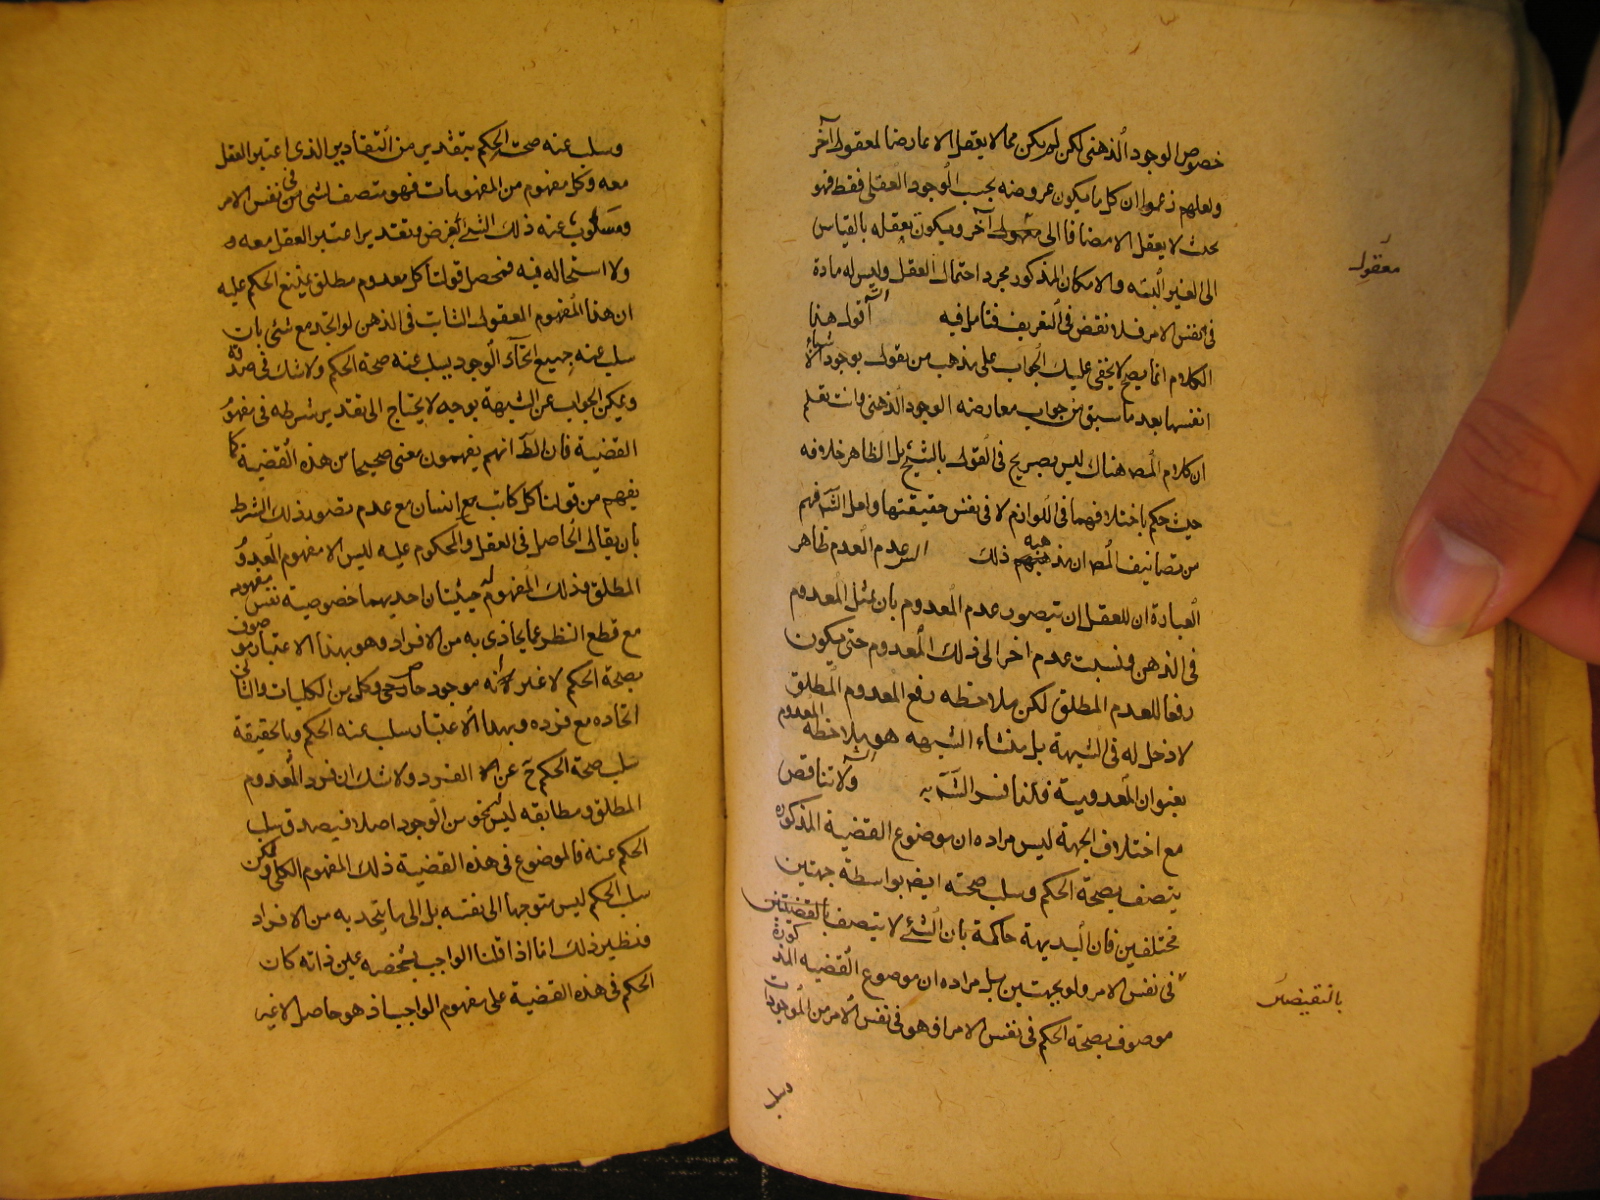 خصوص الوجود الذهنى لكن لم يكن مما لا يعقل الا عارضا لمعقول آخر
ولعلهم زعموا ان كل ما يكون عروضه بحسب الوجود العقلى فقط فهو
بحيث لا يعقل الا مضافا الى معقول آخر ويكون تعقله بالقياس
معقول
الى الغير البته والامكان المذكور مجرد احتمال العقل وليس له مادة
فى نفس الامر فلا نقض فى التعريف فتامل فيه اقول هذا
الكلام انما يصح لا يخفى عليك الجواب على مذهب من يقول بوجود الاشياء
انفسها بعد ما سبق من جواب معارضه الوجود الذهنى وانت تعلم
ان كلام المص هناك ليس بصريح فى القول بالشبح بل الظاهر خلافه
حيث حكم باختلافهما فى اللوازم لا فى نفس حقيقتها ولعل الش فهم
من تصانيف المص ان مذهبه ذلك عدم العدم ظاهر
العبارة ان للعقل ان يتصور عدم المعدوم بان يمثل المعدوم
فى الذهن ونسبت عدم اخر الى ذلك المعدوم حتى يكون
رفعا للعدم المطلق لكن ملاحظه رفع المعدوم المطلق
لا دخل له فى الشبهة بل منشاء الشبهه هو ملاحظه المعدوم
بعنوان المعدومية فلذا فسر الش به ولا تناقض
مع اختلاف الجهة ليس مراده ان موضوع القضية المذكوره
يتصف بصحة الحكم وسلب صحته ايضا بواسطة جهتين
مختلفين فان البديهة حاكمة بان الشئ لا يتصف بالنقيضين
فى نفس الامر ولو بجهتين بل مراده ان موضوع القضيه المذكورة
بالنقيضين
موصوف بصحة الحكم فى نفس الامر اذ هو فى نفس الامر من الموجودات
وسلب
وسلب عنه صحة الحكم بتقدير من التقادير الذى اعتبر العقل
معه وكل مفهوم من المفهومات فهو متصف بشئ فى نفس الامر
ومسلوب عنه ذلك الشئ بفرض وتقدير اعتبر العقل معه و
ولا استحاله فيه فمحصل قولنا كل معدوم مطلق يمتنع الحكم عليه
ان هذا المفهوم المعقول الثابت فى الذهن لو اتحد مع شئ بان
سلب عنه جميع انحاء الوجود يسلب عنه صحة الحكم ولا شك فى صدقه
ويمكن الجواب عن الشبهة بوجه لا يحتاج الى تقدير شرطه فى مفهوم
القضية فان الظ انهم يفهمون معنى صحيحا من هذه القضية كما
يفهم من قولنا كل كاتب مع انسان مع عدم تصور ذلك الشرط
بان يقال الحاصل فى العقل والمحكوم عليه ليس الا مفهوم المعدوم
المطلق وذلك المفهوم له حيثيتان احديهما خصوصية نفس مفهومه
مع قطع النظر عما يحاذى به من الافراد وهو بهذا الاعتبار موصوف
بصحة الحكم لا غير لانه موجود خارجى وكلى من الكليات والثانى
اتحاده مع فرده وبهذا الاعتبار سلب عنه الحكم وبالحقيقة
سلب صحة الحكم ح عن الفرد ولا شك ان فرد المعدوم
المطلق ومطابقه ليس له نحو من الوجود اصلا فيصدق سلب
الحكم عنه فالموضوع فى هذه القضية ذلك المفهوم الكلى ولكن
سلب الحكم ليس متوجها الى نفسه بل الى ما يتحد به من الافراد
ونظير ذلك انا اذا قلنا الواجب تشخصه عين ذاته كان
الحكم فى هذه القضية على مفهوم الواجب اذ هو حاصل لا غير